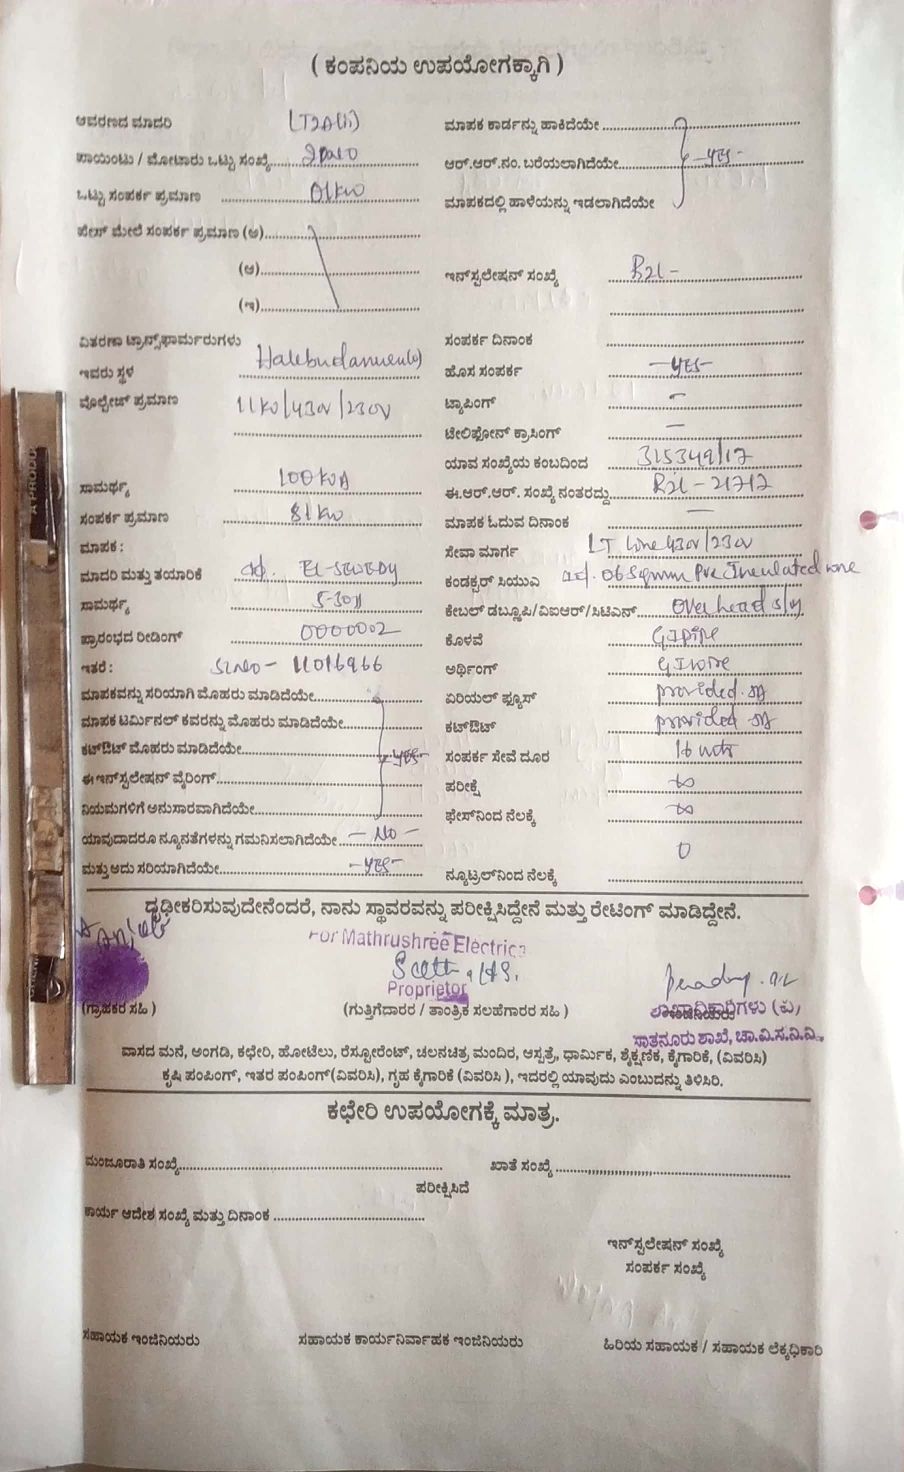 ( ಕಂಪನಿಯ ಉಪಯೋಗಕ್ಕಾಗಿ )
ಆವರಣದ ಮಾದರಿ LT2A(ii)
ಪಾಯಿಂಟು / ಮೋಟಾರು ಒಟ್ಟು ಸಂಖ್ಯೆ
ಒಟ್ಟು ಸಂಪರ್ಕ ಪ್ರಮಾಣ 01KW
ಫೇಸ್ ಮೇಲೆ ಸಂಪರ್ಕ ಪ್ರಮಾಣ (ಅ)
(ಆ)
(ಇ)
ವಿತರಣಾ ಟ್ರಾನ್ಸ್‌ಫಾರ್ಮರುಗಳು
ಇವರು ಸ್ಥಳ
ವೊಲ್ಟೇಜ್ ಪ್ರಮಾಣ 11KV/430V/230V
ಸಾಮರ್ಥ್ಯ 100KVA
ಸಂಪರ್ಕ ಪ್ರಮಾಣ 81KW
ಮಾಪಕ :
ಮಾದರಿ ಮತ್ತು ತಯಾರಿಕೆ EL-SEWEDY
ಸಾಮರ್ಥ್ಯ 5-30A
ಪ್ರಾರಂಭದ ರೀಡಿಂಗ್ 0000002
ಇತರೆ : Slno - 11016966
ಮಾಪಕವನ್ನು ಸರಿಯಾಗಿ ಮೊಹರು ಮಾಡಿದೆಯೇ
ಮಾಪಕ ಟರ್ಮಿನಲ್ ಕವರನ್ನು ಮೊಹರು ಮಾಡಿದೆಯೇ
ಕಟ್‌ಔಟ್ ಮೊಹರು ಮಾಡಿದೆಯೇ -YES-
ಈ ಇನ್‌ಸ್ಟಲೇಷನ್ ವೈರಿಂಗ್
ನಿಯಮಗಳಿಗೆ ಅನುಸಾರವಾಗಿದೆಯೇ
ಯಾವುದಾದರೂ ನ್ಯೂನತೆಗಳನ್ನು ಗಮನಿಸಲಾಗಿದೆಯೇ -NO-
ಮತ್ತು ಅದು ಸರಿಯಾಗಿದೆಯೇ -YES-
ಮಾಪಕ ಕಾರ್ಡನ್ನು ಹಾಕಿದೆಯೇ
ಆರ್.ಆರ್.ನಂ. ಬರೆಯಲಾಗಿದೆಯೇ -YES-
ಮಾಪಕದಲ್ಲಿ ಹಾಳೆಯನ್ನು ಇಡಲಾಗಿದೆಯೇ
ಇನ್‌ಸ್ಟಲೇಷನ್ ಸಂಖ್ಯೆ
ಸಂಪರ್ಕ ದಿನಾಂಕ
ಹೊಸ ಸಂಪರ್ಕ -YES-
ಟ್ಯಾಪಿಂಗ್ -
ಟೇಲಿಫೋನ್ ಕ್ರಾಸಿಂಗ್ -
ಯಾವ ಸಂಖ್ಯೆಯ ಕಂಬದಿಂದ 315349/17
ಈ.ಆರ್.ಆರ್. ಸಂಖ್ಯೆ ನಂತರದ್ದು
ಮಾಪಕ ಓದುವ ದಿನಾಂಕ -
ಸೇವಾ ಮಾರ್ಗ LT line 430V/230V
ಕಂಡಕ್ಟರ್ ಸಿಯುಎ 06 Sqmm PVC Insulated
ಕೇಬಲ್ ಡಬ್ಲ್ಯೂಪಿ/ವಿಐಆರ್/ಸಿಟಿಎನ್ Over head
ಕೊಳವೆ GI pipe
ಅರ್ಥಿಂಗ್ GI wire
ಏರಿಯಲ್ ಫ್ಯೂಸ್ provided. 5A
ಕಟ್‌ಔಟ್ provided 5A
ಸಂಪರ್ಕ ಸೇವೆ ದೂರ 16 mtr
ಪರೀಕ್ಷೆ ∞
ಫೇಸ್‌ನಿಂದ ನೆಲಕ್ಕೆ ∞
0
ನ್ಯೂಟ್ರಲ್‌ನಿಂದ ನೆಲಕ್ಕೆ
ದೃಢೀಕರಿಸುವುದೇನೆಂದರೆ, ನಾನು ಸ್ಥಾವರವನ್ನು ಪರೀಕ್ಷಿಸಿದ್ದೇನೆ ಮತ್ತು ರೇಟಿಂಗ್ ಮಾಡಿದ್ದೇನೆ.
For Mathrushree Electrica
Proprietor
(ಗ್ರಾಹಕರ ಸಹಿ )
(ಗುತ್ತಿಗೆದಾರರ / ತಾಂತ್ರಿಕ ಸಲಹೆಗಾರರ ಸಹಿ )
ಶಾಖಾಧಿಕಾರಿಗಳು (ವಿ)
ಸಾತನೂರು ಶಾಖೆ, ಚಾ.ವಿ.ಸ.ನಿ.ನಿ.
ವಾಸದ ಮನೆ, ಅಂಗಡಿ, ಕಛೇರಿ, ಹೋಟೆಲು, ರೆಸ್ಟೋರೆಂಟ್, ಚಲನಚಿತ್ರ ಮಂದಿರ, ಆಸ್ಪತ್ರೆ, ಧಾರ್ಮಿಕ, ಶೈಕ್ಷಣಿಕ, ಕೈಗಾರಿಕೆ, (ವಿವರಿಸಿ)
ಕೃಷಿ ಪಂಪಿಂಗ್, ಇತರ ಪಂಪಿಂಗ್ (ವಿವರಿಸಿ), ಗೃಹ ಕೈಗಾರಿಕೆ (ವಿವರಿಸಿ ), ಇದರಲ್ಲಿ ಯಾವುದು ಎಂಬುದನ್ನು ತಿಳಿಸಿರಿ.
ಕಛೇರಿ ಉಪಯೋಗಕ್ಕೆ ಮಾತ್ರ.
ಮಂಜೂರಾತಿ ಸಂಖ್ಯೆ
ಖಾತೆ ಸಂಖ್ಯೆ
ಪರೀಕ್ಷಿಸಿದೆ
ಕಾರ್ಯ ಆದೇಶ ಸಂಖ್ಯೆ ಮತ್ತು ದಿನಾಂಕ
ಇನ್‌ಸ್ಟಲೇಷನ್ ಸಂಖ್ಯೆ
ಸಂಪರ್ಕ ಸಂಖ್ಯೆ
ಸಹಾಯಕ ಇಂಜಿನಿಯರು
ಸಹಾಯಕ ಕಾರ್ಯನಿರ್ವಾಹಕ ಇಂಜಿನಿಯರು
ಹಿರಿಯ ಸಹಾಯಕ / ಸಹಾಯಕ ಲೆಕ್ಕಧಿಕಾರಿ